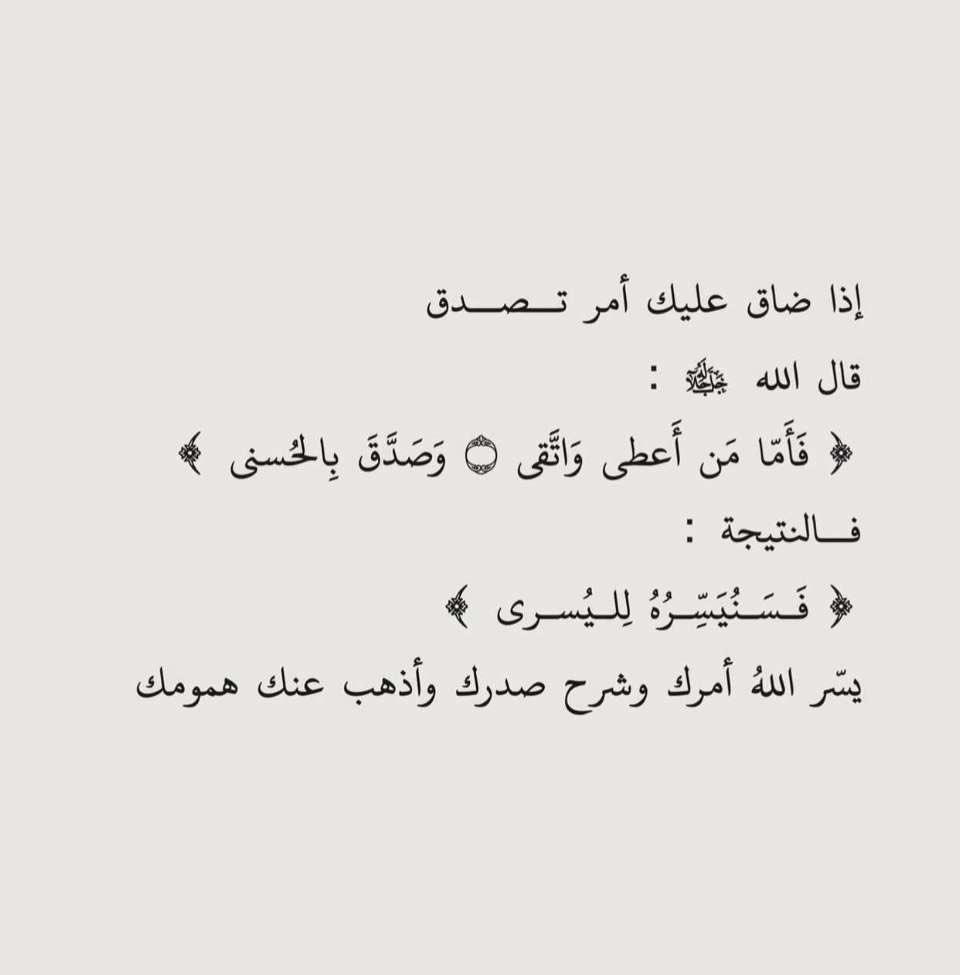 إذا ضاق عليك أمر تـــصـــدق
قال الله ﷻ :
﴿ فَأَمّا مَن أَعطى وَاتَّقى ۝ وَصَدَّقَ بِالحُسنى ﴾
فـــالنتيجة :
﴿ فَـسَـنُيَسِّـرُهُ لِلـيُسـرى ﴾
يسّر اللهُ أمرك وشرح صدرك وأذهب عنك همومك